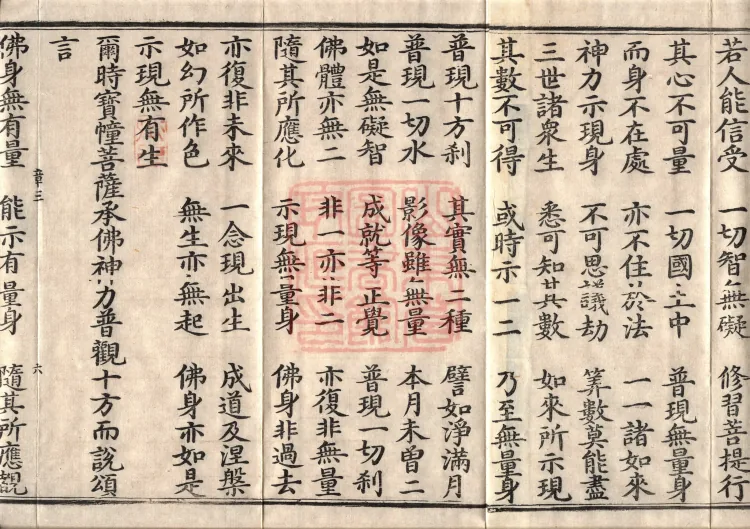 若人能信受 一切智無礙 修習菩提行
其心不可量 一切國土中 普現無量身
而身不在處 亦不住於法 一一諸如來
神力示現身 不可思議劫 筭數莫能盡
三世諸衆生 悉可知其數 如來所示現
其數不可得 或時示一二 乃至無量身
普現十方刹 其實無二種 譬如淨滿月
普現一切水 影像雖無量 本月未曾二
如是無礙智 成就等正覺 普現一切刹
佛體亦無二 非一亦非二 亦復非無量
隨其所應化 示現無量身 佛身非過去
亦復非未來 一念現出生 成道及涅槃
如幻所作色 無生亦無起 佛身亦如是
示現無有生
爾時寶幢菩薩承佛神力普觀十方而說頌
言
章三 六
佛身無有量 能示有量身 隨其所應覩